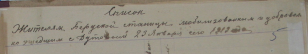 Список
Жителям, Бердской станицы, мобилизованным и добровол
но ушедшим с Дутовым 23 Января сего 1919 года.